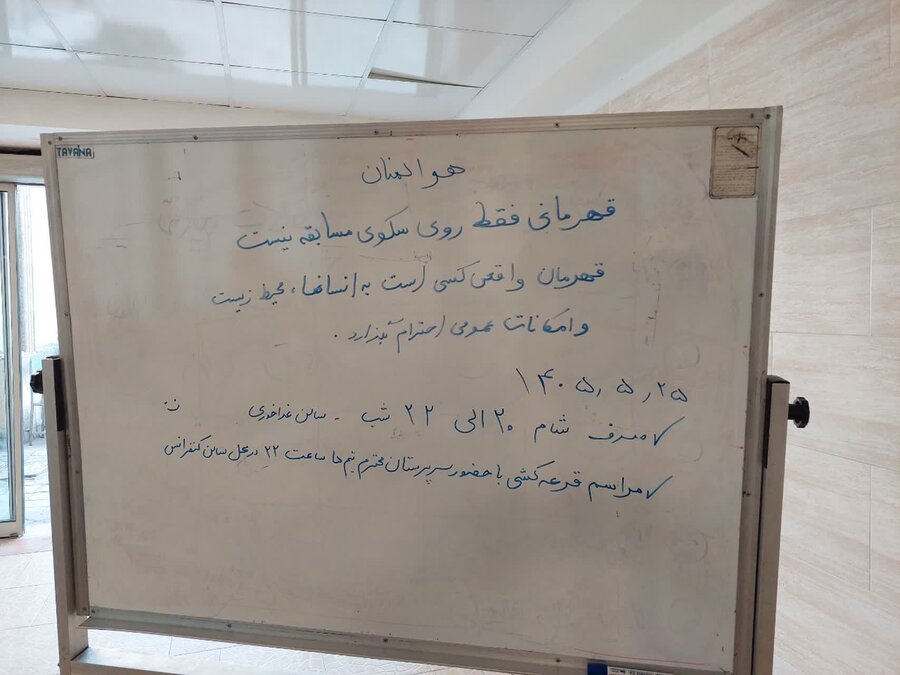 TAVANA
هوالمنان
قهرمانی فقط روی سکوی مسابقه نیست
قهرمان واقعی کسی است به انسانها، محیط زیست
و امکانات عمومی احترام بگذارد.
۱۴۰۵,۵,۲۵
✓ صرف شام ۲۰ الی ۲۲ شب - سالن غذاخوری
✓ مراسم قرعه کشی با حضور سرپرستان محترم تیم ها ساعت ۲۲ در محل سالن کنفرانس